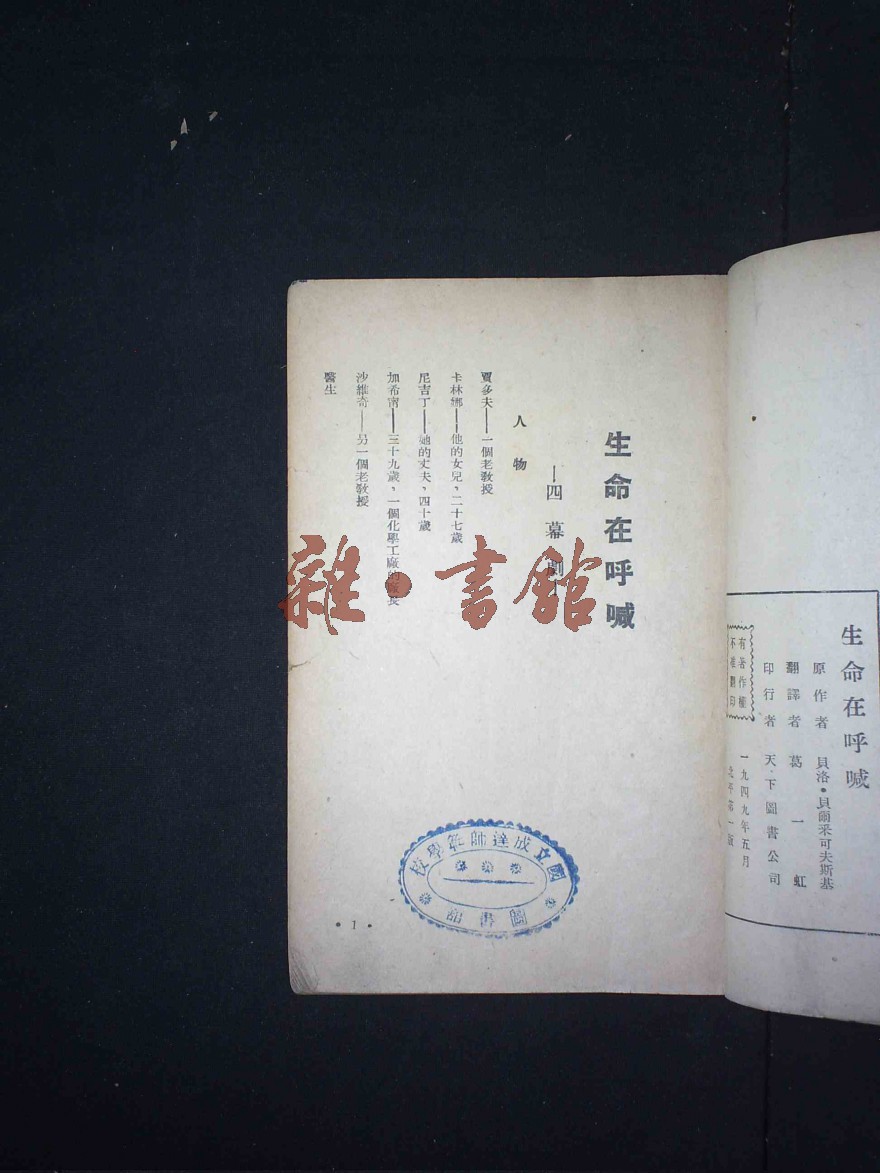 生命在呼喊
原作者 貝洛•貝爾采可夫斯基
翻譯者 葛一虹
印行者 天下圖書公司
一九四九年五月
北平第一版
有著作權
不准翻印
生命在呼喊
—四幕劇—
人物
賈多夫——一個老教授
卡林娜——他的女兒，二十七歲
尼吉丁——她的丈夫，四十歲
加希甯——三十九歲，一個化學工廠的廠長
沙維奇——另一個老教授
醫生
國立成達師範學校
圖書館
• 1 •
雜•書館